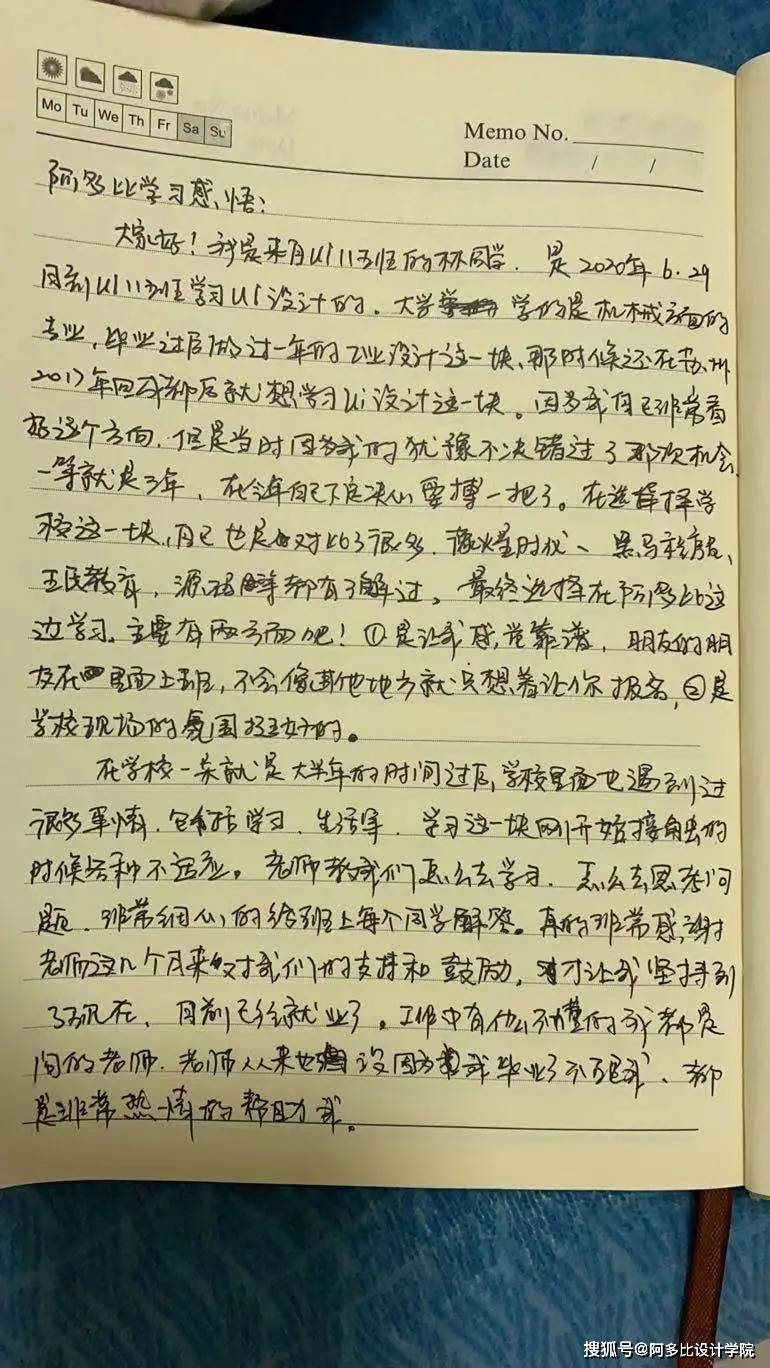 Mo Tu We Th Fr Sa Su
Memo No.
Date / /
阿多比学习感悟：
大家好！我是来自UI11班的林同学．是2020年6.29
日到UI11班学习UI设计的．大学学的是机械方面的
专业，毕业过后做过一年的工业设计这一块、那时候还在苏州
2017年回成都后就想学习Ui设计这一块。因为我自己非常看
好这个方向．但是当时因为我的犹豫不决错过了那次机会，
一等就是三年，在今年自己下定决心要搏一把了。在选择择学
校这一块，自己也是对比了很多．火星时代、黑马
教育，源码等都有了解过。最终选择在阿多比这
边学习．主要有两方面吧！①是让我感觉靠谱，朋友的朋
友在里面上班，不会像其他地方就只想着让你报名，②是
学校现场的氛围挺好的。
在学校一呆就是大半年的时间过后，学校里面也遇到过
很多事情，包括学习．生活等．学习这一块刚开始接触的
时候各种不适应。老师教我们怎么去学习．怎么去思考问
题．非常细心的给班上每个同学解答。真的非常感谢
老师这几个月来对我们的支持和鼓励，才让我坚持到
了现在、目前已经就业了。工作中有什么不懂的我都是
问的老师．老师从来也没因为我毕业了不回我、都
是非常热情的帮助我。
搜狐号@阿多比设计学院